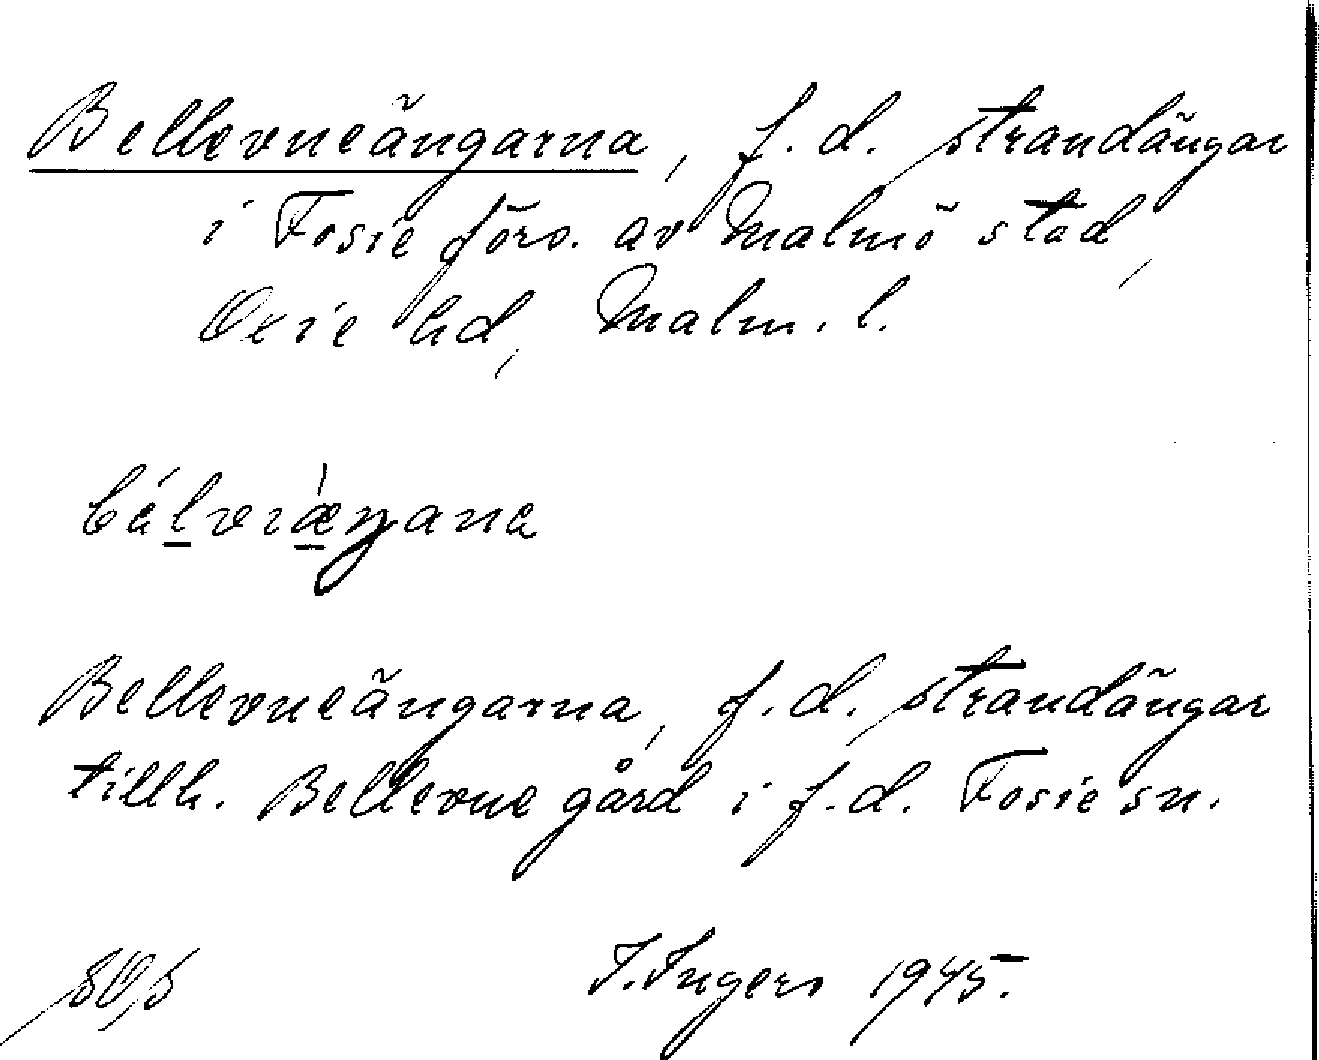 Bellevueängarna, f. d. strandängar
i Fosie förs. av Malmö stad,
Oxie hd, Malm. l.
Bellevueängarna, f. d. strandängar
tillh. Bellevue gård i f. d. Fosie sn.
I. Ingers 1945.